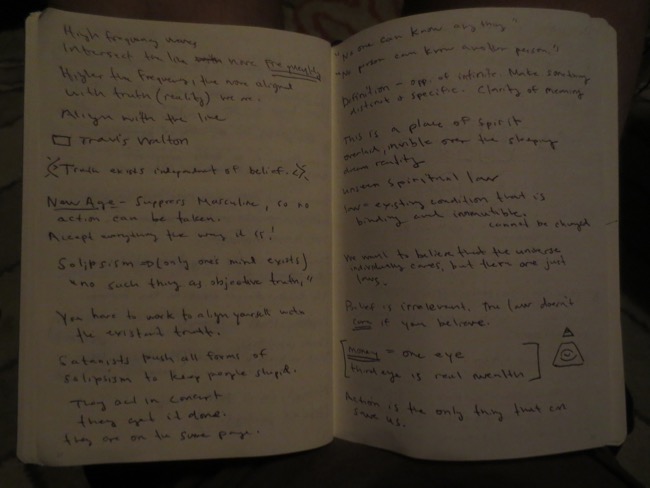 High frequency waves
Intersect the line more frequently
Higher the frequency, the more aligned
with truth (reality) we are.
Align with the line
Travis Walton
Truth exists independent of belief.
New Age - Suppress Masculine, so no
action can be taken.
Accept everything the way it is!
Solipsism → (only one's mind exists)
"no such thing as objective truth,"
You have to work to align yourself with
the existant truth.
Satanists push all forms of
solipsism to keep people stupid.
They act in concert
they get it done.
they are on the same page.
"No one can know anything"
"No person can know another person"
Definition - opp. of infinite. Make something
distinct & specific. Clarity of meaning
This is a place of spirit
overlaid, invisible over the sleeping
reality
unseen spiritual law
law = existing condition that is
binding and immutable.
cannot be changed
We want to believe that the universe
cares, but there are just
laws.
Belief is irrelevant. The law doesn't
care if you believe.
money = one eye
third eye is real wealth
Action is the only thing that can
save us.